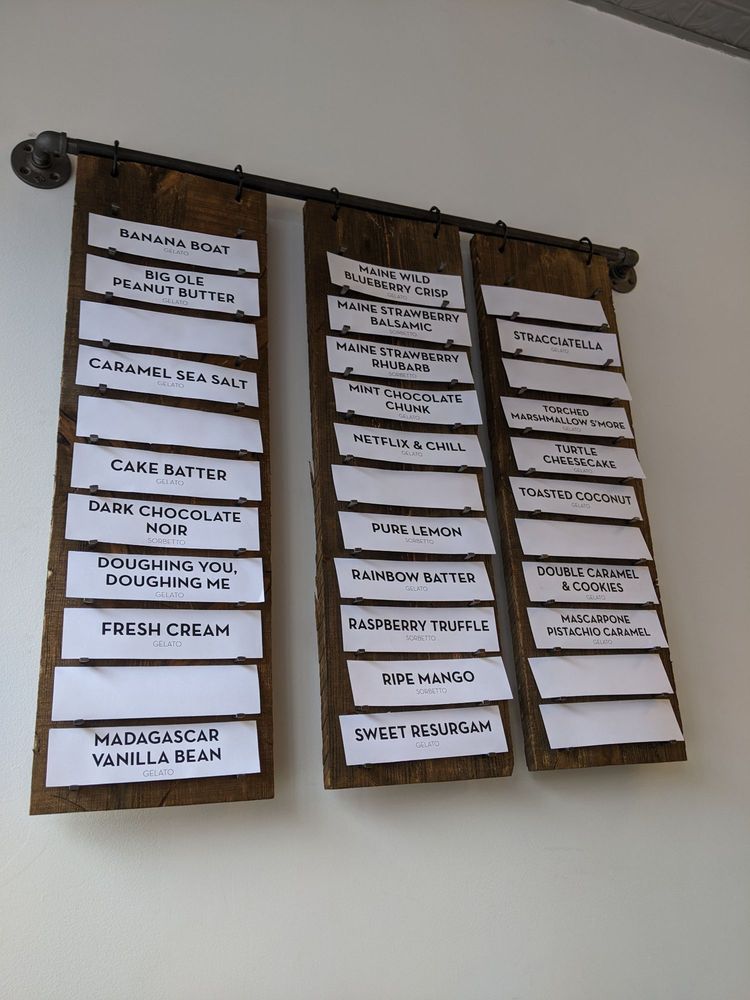 BANANA BOAT
GELATO
BIG OLE
PEANUT BUTTER
GELATO
CARAMEL SEA SALT
GELATO
CAKE BATTER
GELATO
DARK CHOCOLATE
NOIR
SORBETTO
DOUGHING YOU,
DOUGHING ME
GELATO
FRESH CREAM
GELATO
MADAGASCAR
VANILLA BEAN
GELATO
MAINE WILD
BLUEBERRY CRISP
GELATO
MAINE STRAWBERRY
BALSAMIC
SORBETTO
MAINE STRAWBERRY
RHUBARB
SORBETTO
MINT CHOCOLATE
CHUNK
GELATO
NETFLIX & CHILL
GELATO
PURE LEMON
SORBETTO
RAINBOW BATTER
GELATO
RASPBERRY TRUFFLE
SORBETTO
RIPE MANGO
SORBETTO
SWEET RESURGAM
GELATO
STRACCIATELLA
GELATO
TORCHED
MARSHMALLOW S'MORE
GELATO
TURTLE
CHEESECAKE
GELATO
TOASTED COCONUT
GELATO
DOUBLE CARAMEL
& COOKIES
GELATO
MASCARPONE
PISTACHIO CARAMEL
GELATO